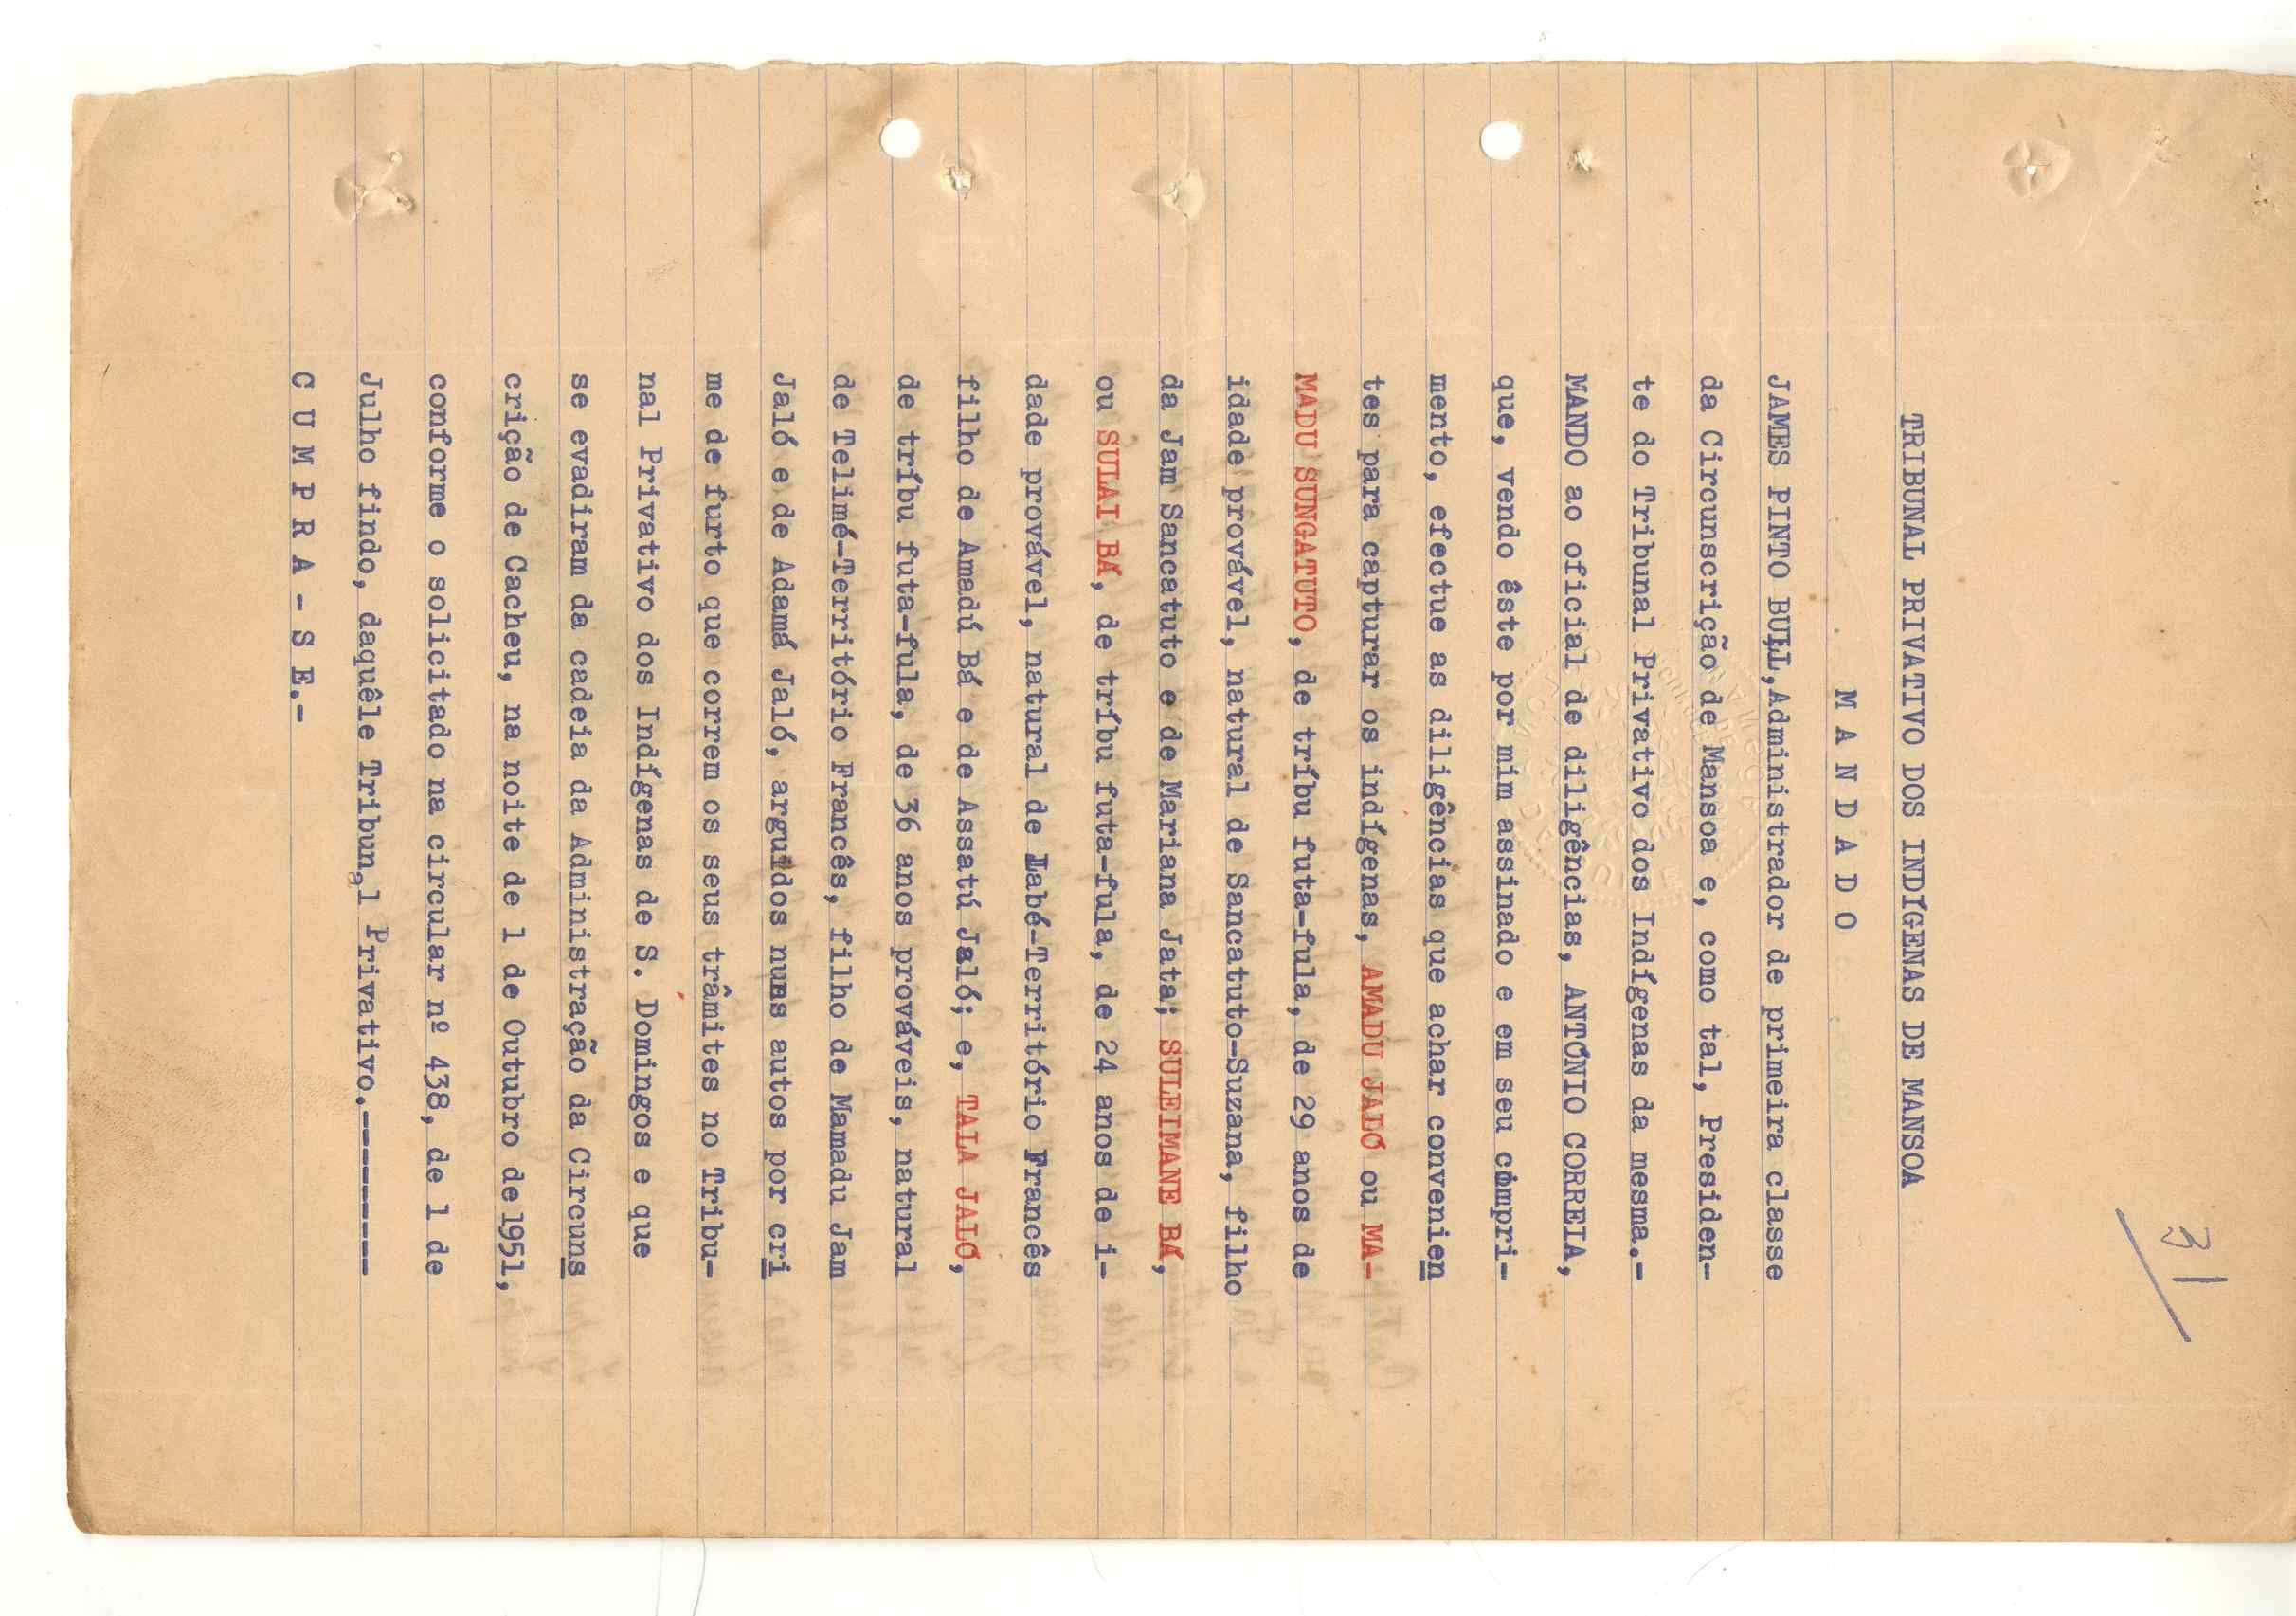 31
TRIBUNAL PRIVATIVO DOS INDÍGENAS DE MANSOA
M A N D A D O
JAMES PINTO BULL, Administrador de primeira classe
da Circunscrição de Mansoa e, como tal, Presiden-
te do Tribunal Privativo dos Indígenas da mesma.-
MANDO ao oficial de diligências, ANTÓNIO CORREIA,
que, vendo êste por mim assinado e em seu cumpri-
mento, efectue as diligências que achar convenien
tes para capturar os indígenas, AMADU JALÓ ou MA-
MADU SUNGATUTO, de tríbu futa-fula, de 29 anos de
idade provável, natural de Sancatuto-Suzana, filho
da Jam Sancatuto e de Mariana Jata; SULEIMANE BÁ,
ou SULAI BÁ, de tríbu futa-fula, de 24 anos de i-
dade provável, natural de Labé-Território Francês
filho de Amadú Bá e de Assatú Jaló; e, TALA JALÓ,
de tríbu futa-fula, de 36 anos prováveis, natural
de Telimé-Território Francês, filho de Mamadu Jam
Jaló e de Adamá Jaló, arguidos nuns autos por cri
me de furto que correm os seus trâmites no Tribu-
nal Privativo dos Indígenas de S. Domingos e que
se evadiram da cadeia da Administração da Circuns
crição de Cacheu, na noite de 1 de Outubro de 1951,
conforme o solicitado na circular nº 438, de 1 de
Julho findo, daquêle Tribunal Privativo.--------
C U M P R A - S E.-